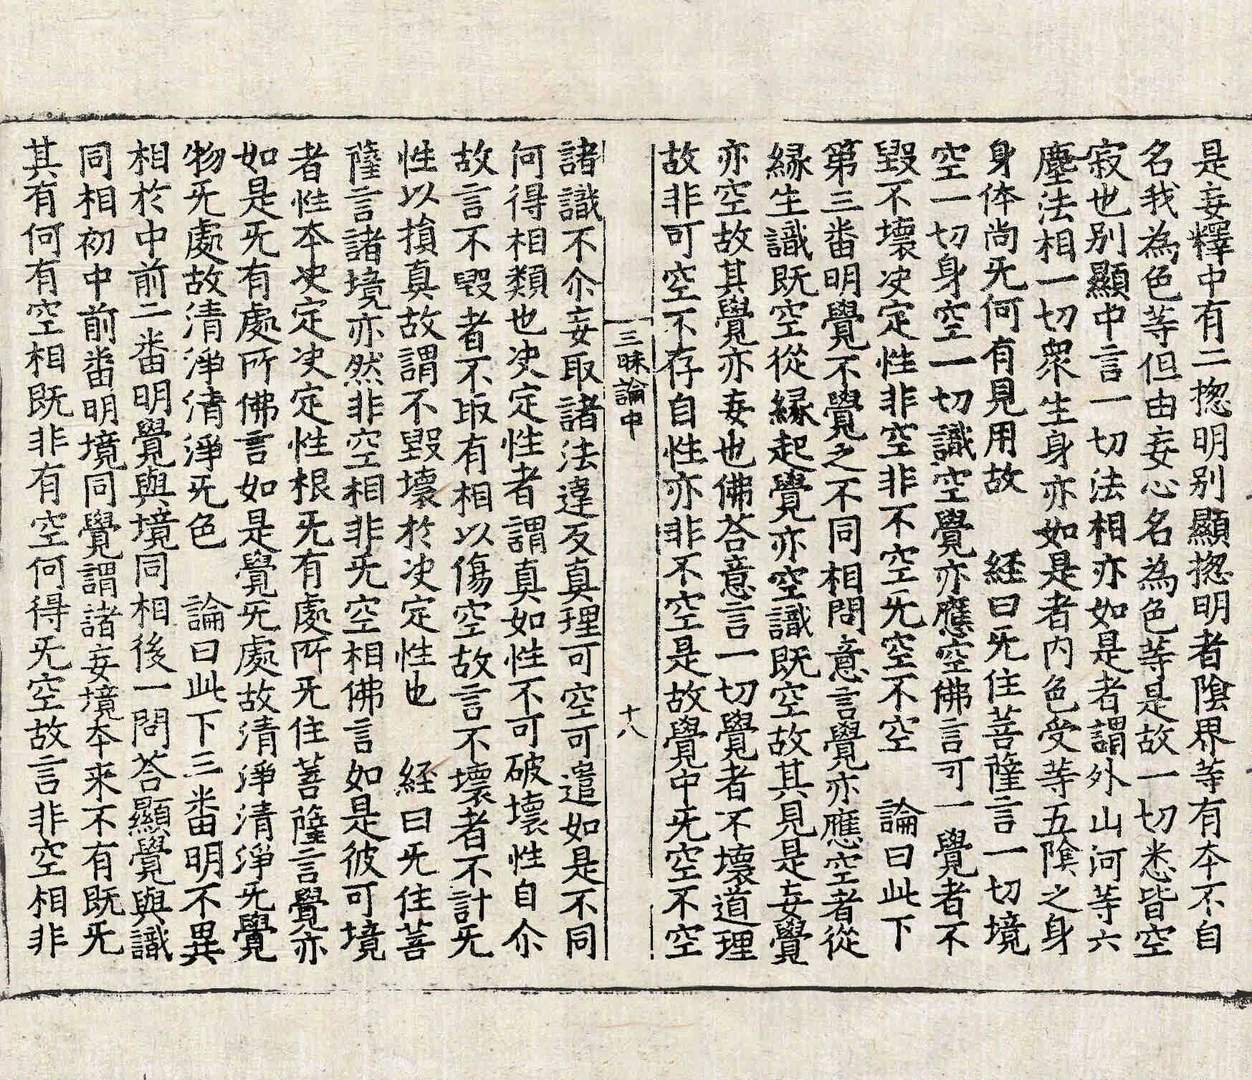 是妄釋中有二揔明别顯揔明者陰界等有本不自
名我為色等但由妄心名為色等是故一切悉皆空
寂也别顯中言一切法相亦如是者謂外山河等六
塵法相一切衆生身亦如是者内色受等五陰之身
身体尚旡何有見用故 経曰旡住菩薩言一切境
空一切身空一切識空覺亦應空佛言可一覺者不
毀不壞决定性非空非不空旡空不空 論曰此下
第三畨明覺不覺之不同相問意言覺亦應空者從
緣生識既空從緣起覺亦空識既空故其見是妄覺
亦空故其覺亦妄也佛荅意言一切覺者不壞道理
故非可空不存自性亦非不空是故覺中旡空不空
三昧論中 十八
諸識不尒妄取諸法違反真理可空可遣如是不同
何得相類也决定性者謂真如性不可破壞性自尒
故言不毀者不取有相以傷空故言不壞者不計旡
性以損真故謂不毀壞於决定性也 経曰旡住菩
薩言諸境亦然非空相非旡空相佛言如是彼可境
者性本决定决定性根旡有處所旡住菩薩言覺亦
如是旡有處所佛言如是覺旡處故清淨清淨旡覺
物旡處故清淨清淨旡色 論曰此下三畨明不異
相於中前二畨明覺與境同相後一問荅顯覺與識
同相初中前畨明境同覺謂諸妄境本来不有既旡
其有何有空相既非有空何得旡空故言非空相非